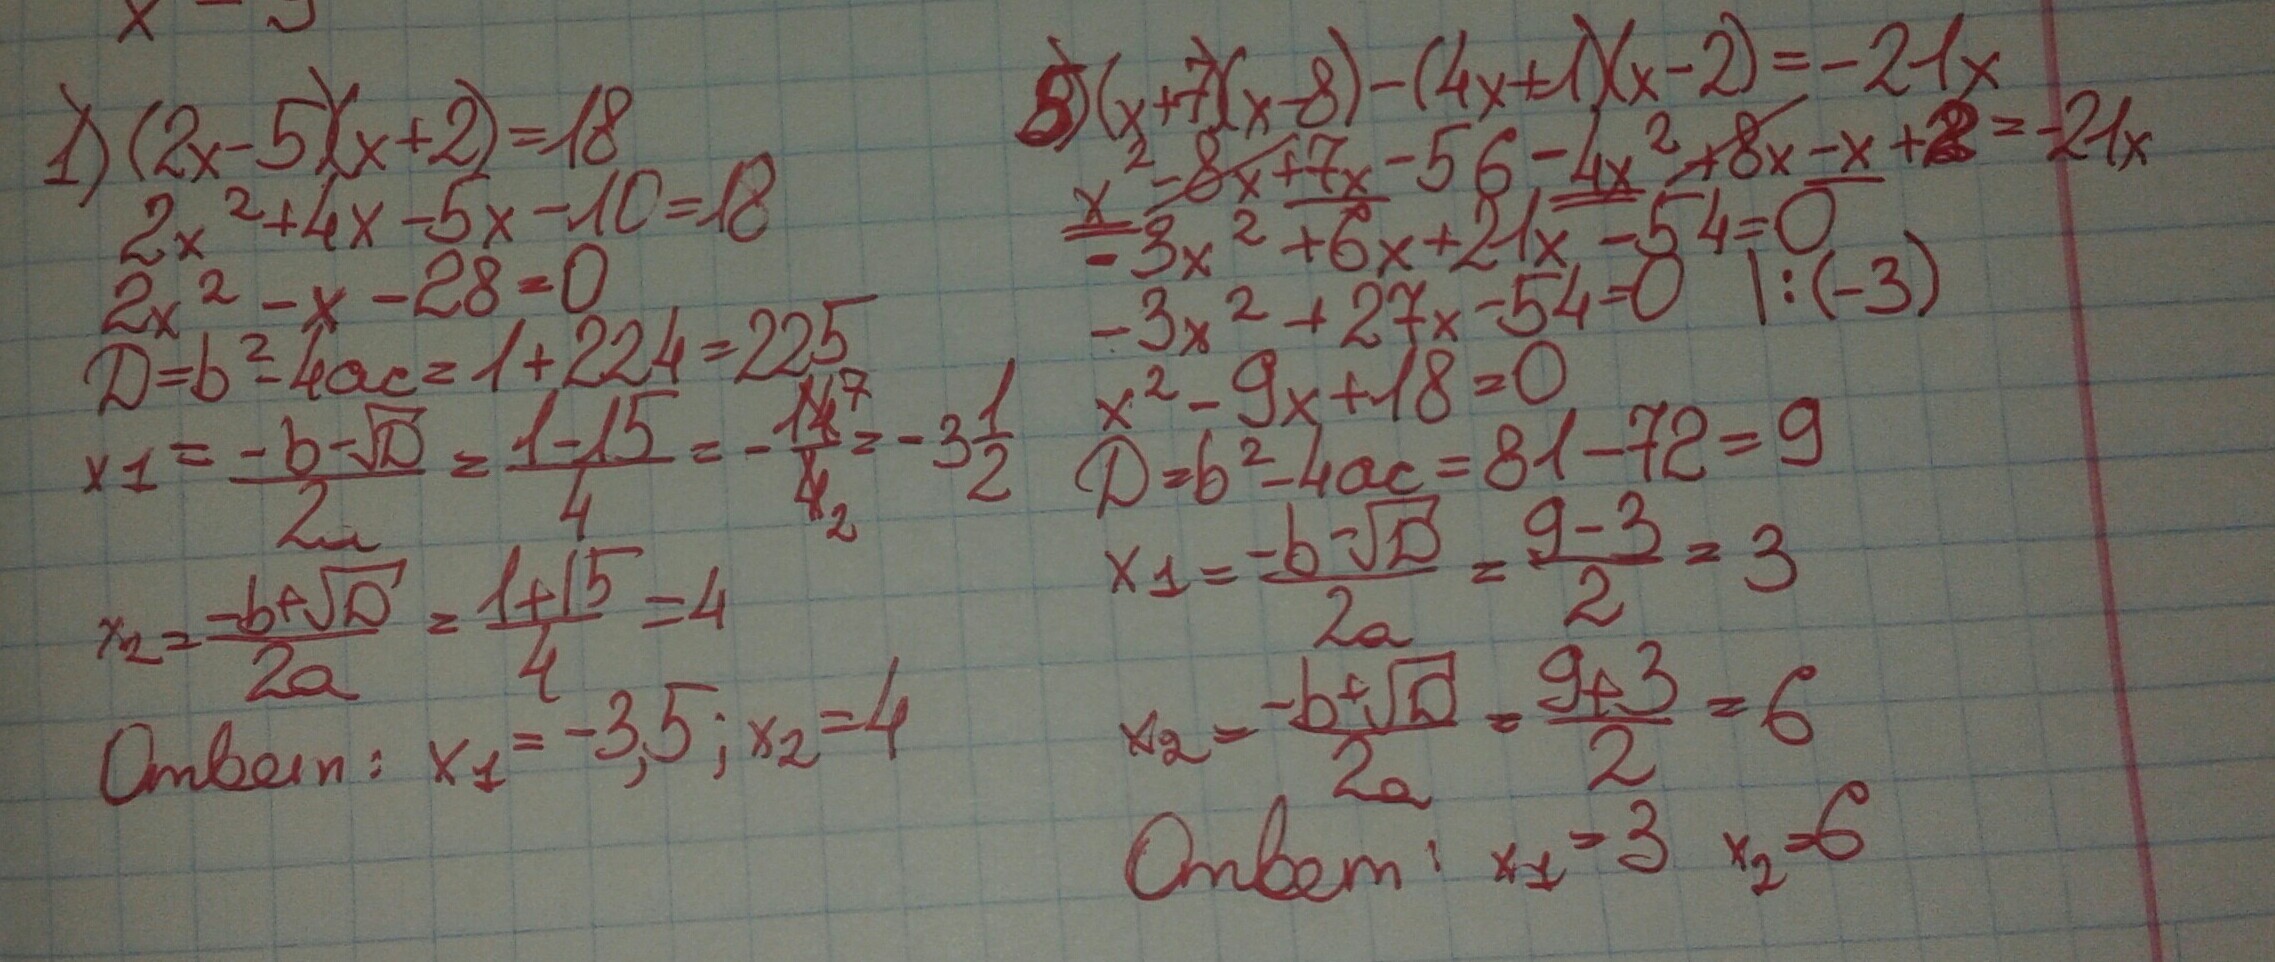 1) (2x-5)(x+2)=18
2x²+4x-5x-10=18
2x²-x-28=0
D=b²-4ac=1+224=225
x1=(-b-√D)/2a=(1-15)/4=-14/4 7/2=-3 1/2
x2=(-b+√D)/2a=(1+15)/4=4
Ответ: x1=-3,5; x2=4
3) (x+7)(x-8)-(4x+1)(x-2)=-21x
x²-8x+7x-56-4x²+8x-x+2=-21x
-3x²+6x+21x-54=0
-3x²+27x-54=0 |:(-3)
x²-9x+18=0
D=b²-4ac=81-72=9
x1=(-b-√D)/2a=(9-3)/2=3
x2=(-b+√D)/2a=(9+3)/2=6
Ответ: x1=3 x2=6